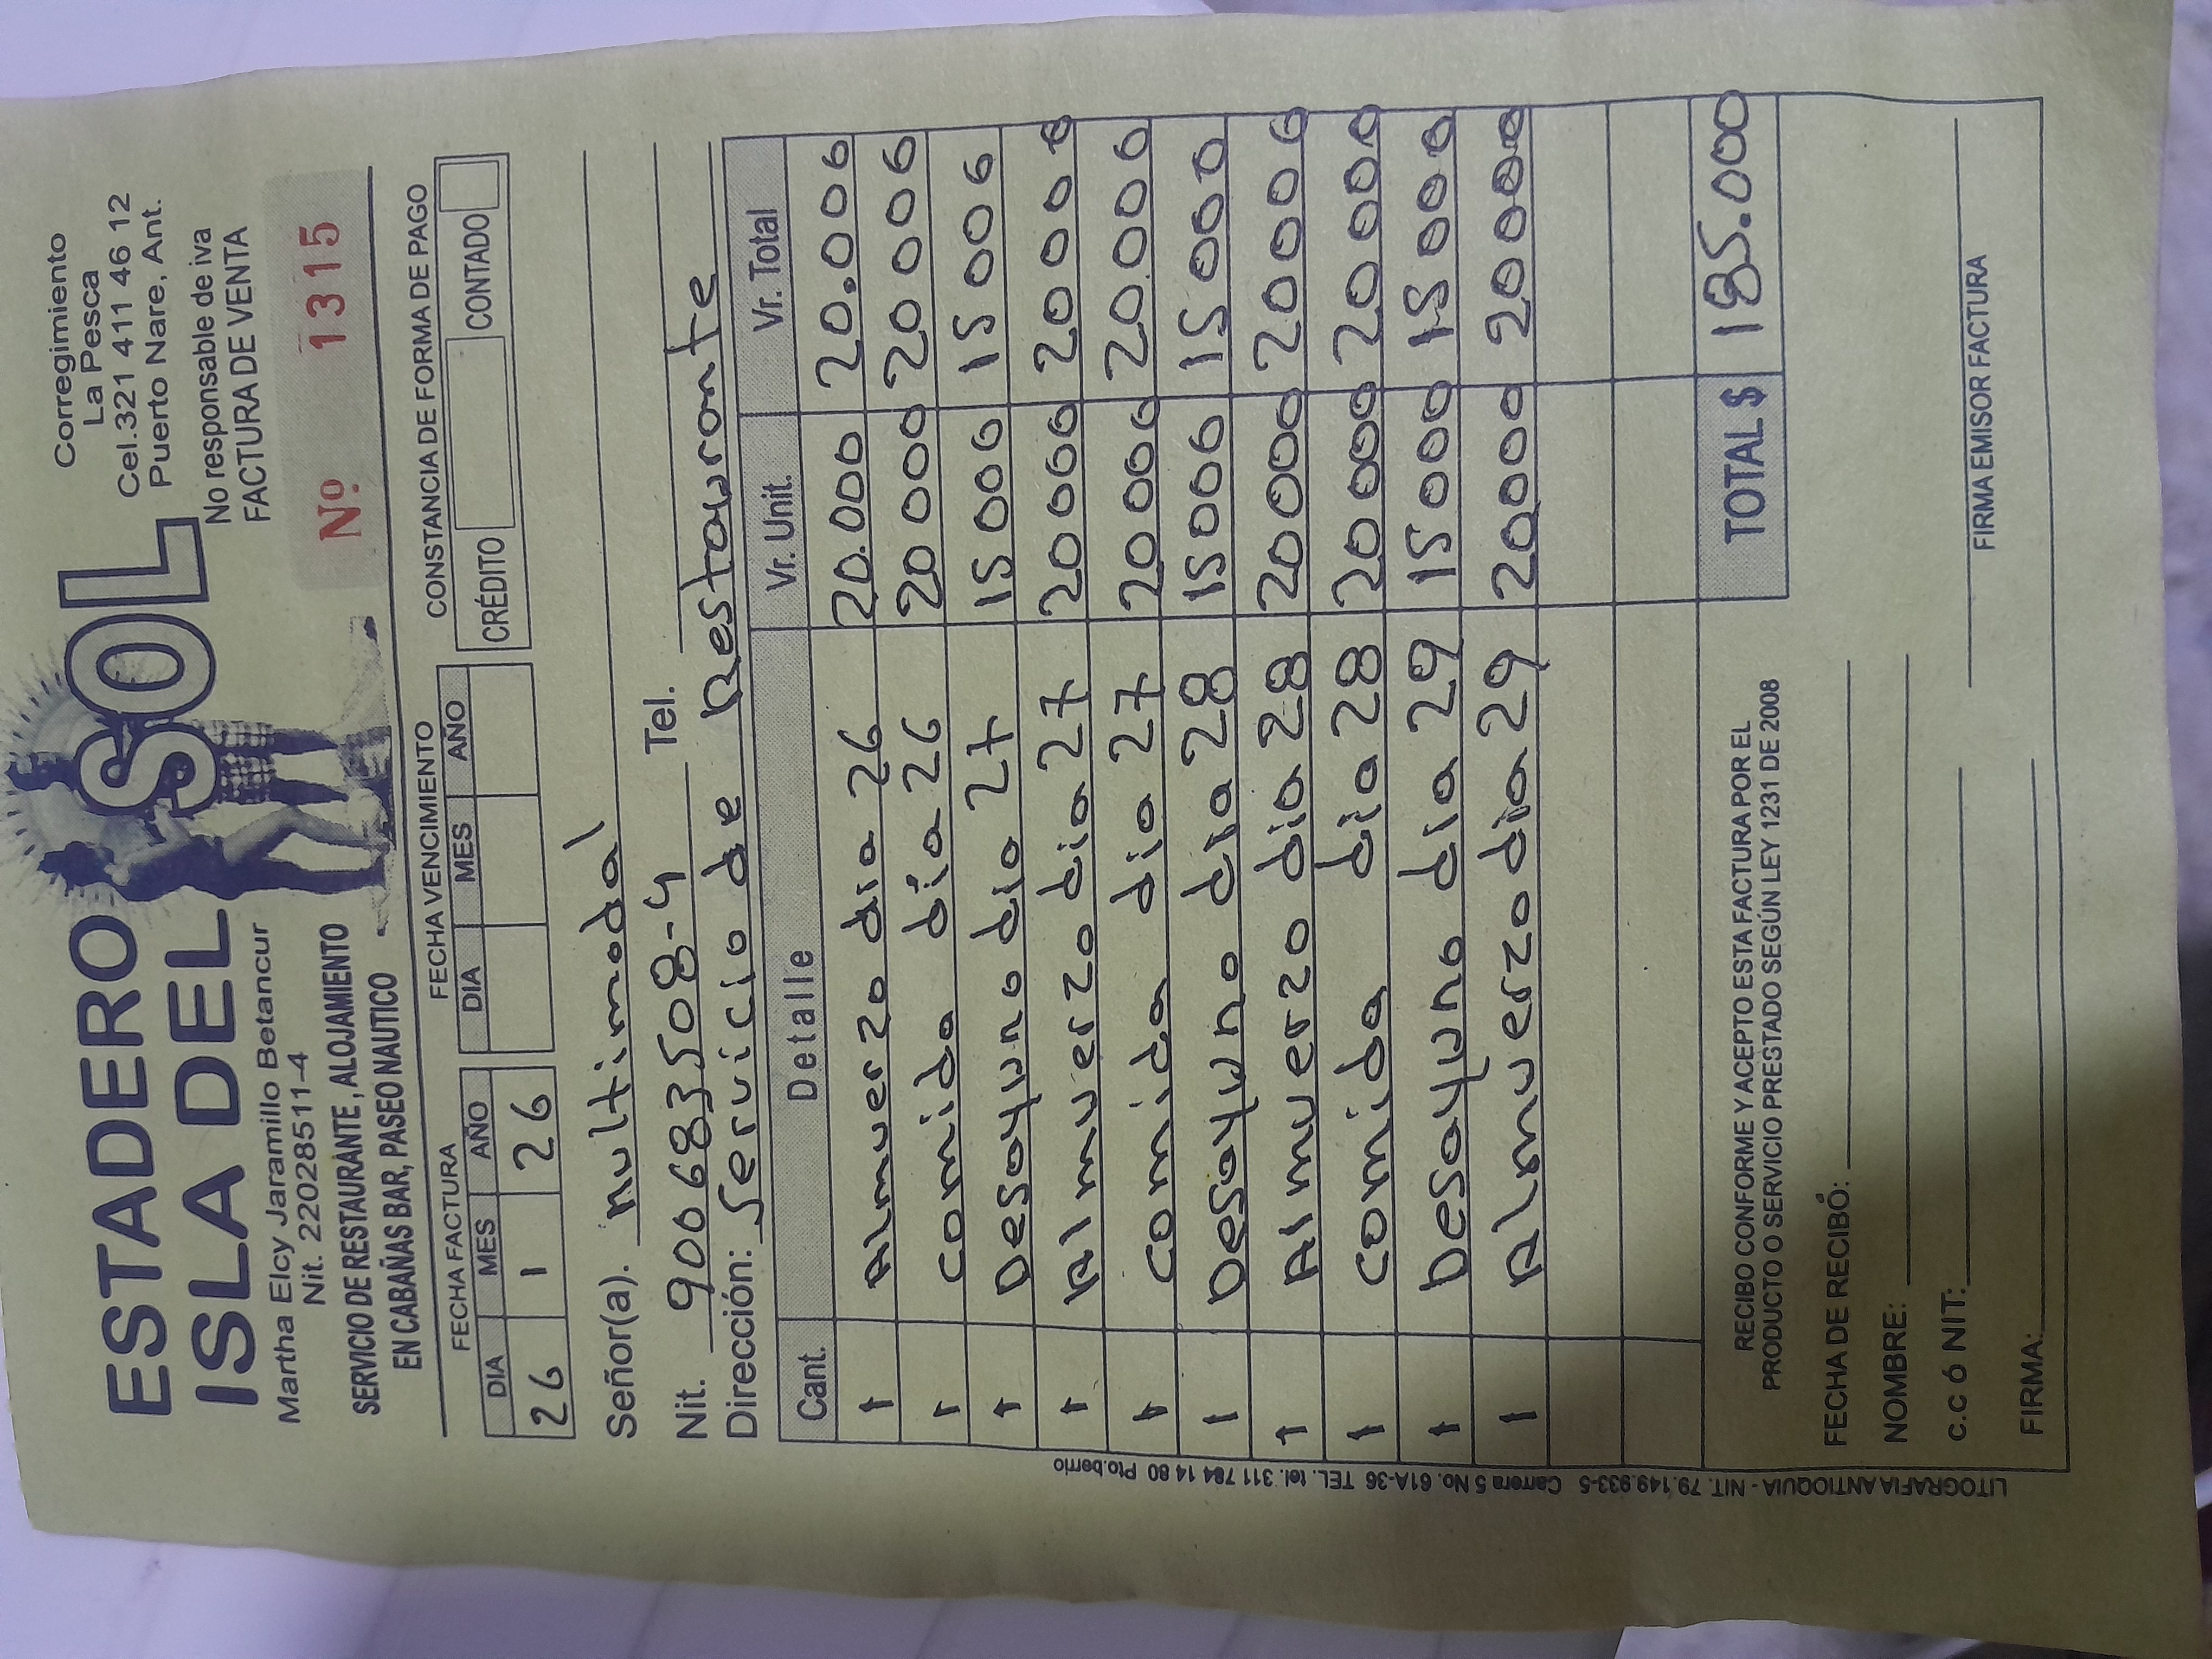 ESTADERO
ISLA DEL SOL
Martha Elcy Jaramillo Betancur
Nit. 22028511-4
SERVICIO DE RESTAURANTE, ALOJAMIENTO
EN CABAÑAS BAR, PASEO NAUTICO
Corregimiento
La Pesca
Cel.321 411 46 12
Puerto Nare, Ant.
No responsable de iva
FACTURA DE VENTA
Nº 1315
FECHA FACTURA FECHA VENCIMIENTO CONSTANCIA DE FORMA DE PAGO
DIA MES AÑO DIA MES AÑO CRÉDITO CONTADO
26 1 26
Señor(a). multimodal
Nit. 900683508-4 Tel.
Dirección: servicio de Restaurante
Cant. Detalle Vr. Unit. Vr. Total
1 Almuerzo dia 26 20.000 20.000
1 comida dia 26 20 000 20 000
1 Desayuno dia 27 15 000 15 000
1 Almuerzo dia 27 20000 20000
1 comida dia 27 20000 20.000
1 Desayuno dia 28 15000 15000
1 Almuerzo dia 28 20000 20000
1 comida dia 28 20000 20000
1 Desayuno dia 29 15000 15000
1 Almuerzo dia 29 20000 20000
TOTAL $ 185.000
RECIBO CONFORME Y ACEPTO ESTA FACTURA POR EL
PRODUCTO O SERVICIO PRESTADO SEGÚN LEY 1231 DE 2008
FECHA DE RECIBÓ:
NOMBRE:
C.C Ó NIT:
FIRMA:
FIRMA EMISOR FACTURA
LITOGRAFIA ANTIOQUIA - NIT. 79.149.933-5 Carrera 5 No. 61A-36 TEL. tel. 311 784 14 80 Pto.berrio